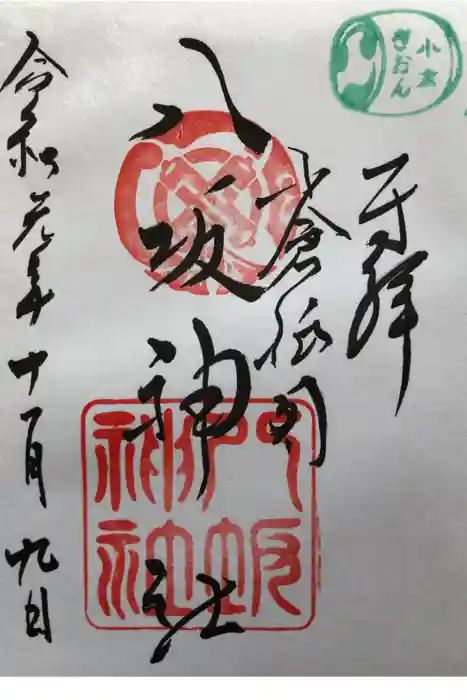 小倉
ぎおん
奉拝
小倉祇園
八坂神社
令和元年十一月九日
八坂
神社